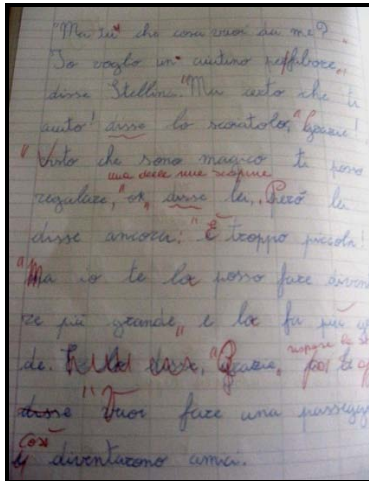 "Ma tu che cosa vuoi da me?
Io voglio un aiutino
disse Stellina. "Ma certo che ti
aiuto! disse lo scoiattolo, "Grazie!
"Visto che sono magico ti posso
una delle mie
regalare, "ok, disse lei. Però la
disse ancora: "È troppo piccola!
"Ma io te la posso fare diven
re più grande" e la fa più g
de. "Grazie,
disse "Vuoi fare una passeg
Così
diventarono amici.